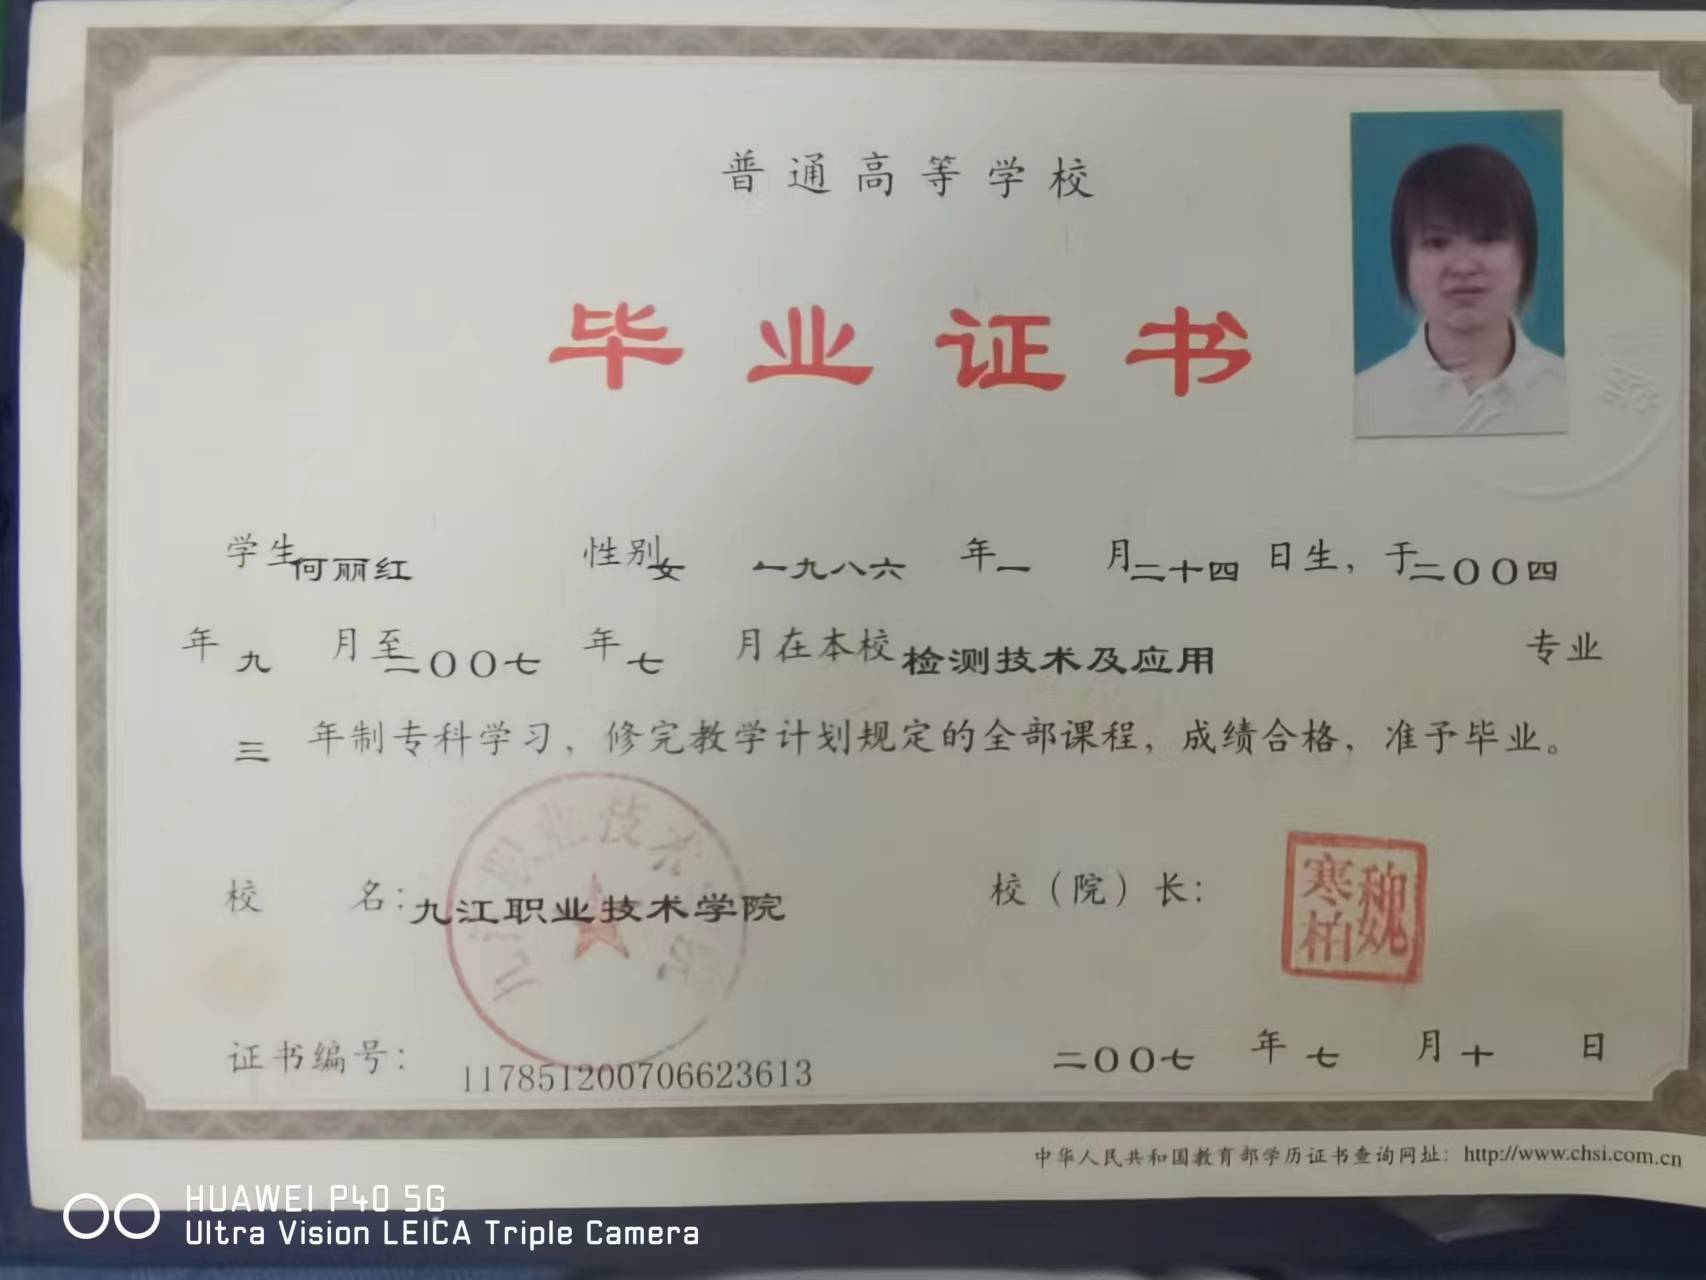 普通高等学校
毕业证书
学生何丽红 性别女 一九八六年一月二十四日生，于二〇〇四
年九月至二〇〇七年七月在本校检测技术及应用专业
三年制专科学习，修完教学计划规定的全部课程，成绩合格，准予毕业。
九江职业技术学院
校名：九江职业技术学院 校（院）长：
魏寒柏
证书编号：117851200706623613 二〇〇七年七月十日
中华人民共和国教育部学历证书查询网址：http://www.chsi.com.cn
HUAWEI P40 5G
Ultra Vision LEICA Triple Camera